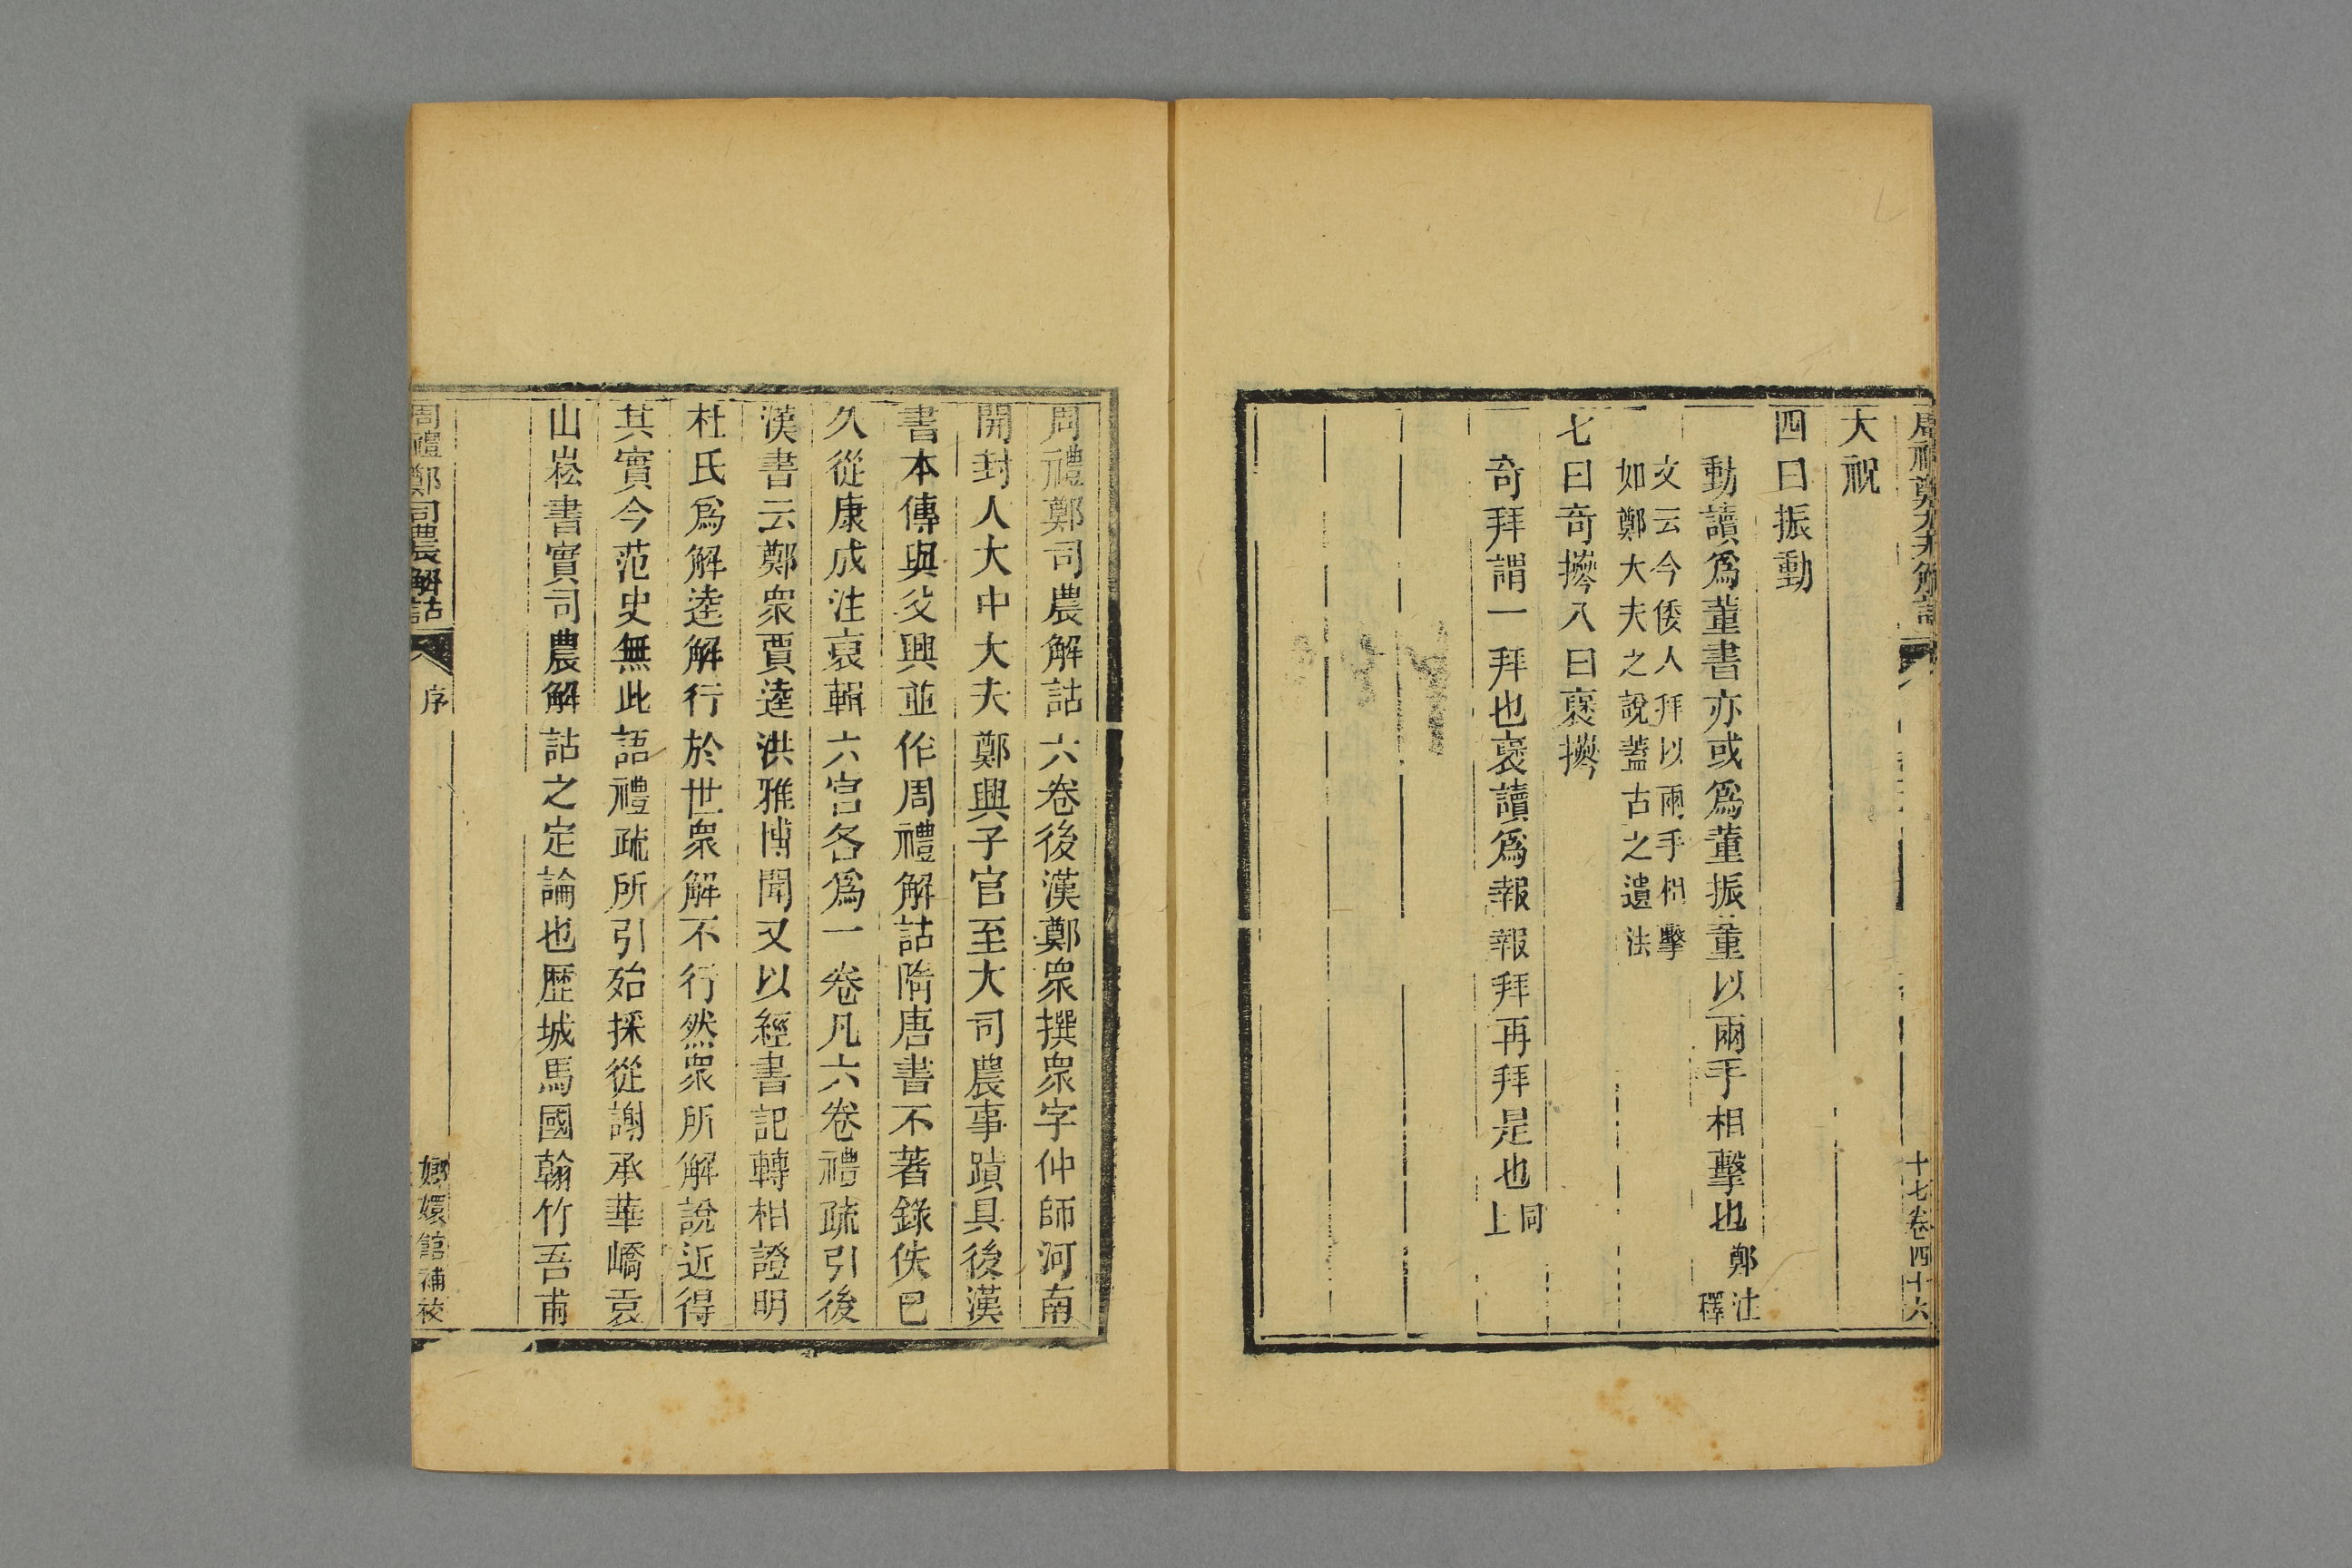 大祝
四曰振動
動讀爲董書亦或爲董振董以兩手相擊也鄭注釋
文云今倭人拜以兩手相擊
如鄭大夫之說蓋古之遺法
七曰奇𢷎八曰褒𢷎
奇拜謂一拜也褒讀爲報報拜再拜是也同上
十七卷四十六
周禮鄭司農解詁六卷後漢鄭衆撰衆字仲師河南
開封人大中大夫鄭興子官至大司農事蹟具後漢
書本傳與父興並作周禮解詁隋唐書不著錄佚已
久從康成注裒輯六官各爲一卷凡六卷禮疏引後
漢書云鄭衆賈逵洪雅博聞又以經書記轉相證明
杜氏爲解逵解行於世衆解不行然衆所解說近得
其實今范史無此語禮疏所引殆採從謝承華嶠袁
山崧書實司農解詁之定論也歷城馬國翰竹吾甫
周禮鄭司農解詁
序
嫏嬛館補校